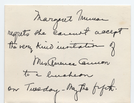 Margaret
regrets she cannot accept
the very kind invitation of
Mrs Annie Cannon
to a luncheon
on Tuesday. May the fifth.